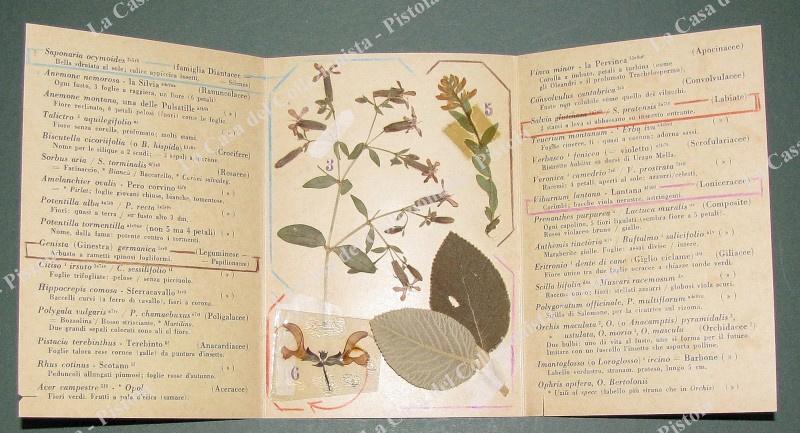 Saponaria ocymoides (famiglia Diantacee
Bella sdraiata al sole; calice appiccica insetti. — Silenee)
Anemone nemorosa - la Silvia (Ranuncolacee)
Ogni fusto, 3 foglie a raggiera, un fiore (6 petali)
Anemone montana, una delle Pulsatille ( » )
Fiore reclinato, 6 petali pelosi (fuori) come le foglie.
Talictro aquilegifolio ( » )
Fiore senza corolla, profumato; molti stami.
Biscutella cicoriifolia (o B. hispida) (Crocifere)
Nome per le silique a 2 scudi;
Sorbus aria / S. torminalis (Rosacee)
— Farinaccio, * Bianca / Baccarello,
Amelanchier ovalis - Pero corvino ( » )
— * Pirlet; foglie giovani chiuse, bianche, tomentose.
Potentilla alba / P. recta ( » )
Fiori: quasi a terra / su fusto alto 3 dm.
Potentilla tormentilla (non 5 ma 4 petali)
Nome, dalla fama: potente contro i tormenti.
Genista (Ginestra) germanica (Leguminose —
Arbusto a rametti spinosi fogliformi. Papilionacee)
Citiso irsuto / C. sessilifolio ( » )
Foglie trifogliate; pelose / senza picciuolo.
Hippocrepis comosa - Sferracavallo ( » )
Baccelli curvi (a ferro di cavallo), fiori a corona.
Polygala vulgaris / P. chamaebuxus (Poligalacee)
— Bozzolina / Bosso strisciante, * Martilins.
Due grandi sepali colorati sono ali al fiore.
Pistacia terebinthus - Terebinto (Anacardiacee)
Foglie talora rese cornee (galle) da puntura d'insetto.
Rhus cotinus - Scotano ( » )
Peduncoli allungati piumosi; foglie rosse d'autunno.
Acer campestre - * Opol (Aceracee)
Fiori verdi. Frutti a pala d'elica (samare).
3
5
6
Vinca minor - la Pervinca (Apocinacee)
Corolla a imbuto, petali a turbina (come
gli Oleandri e il profumato Trachelosperma).
Convolvulus cantabrica (Convolvulacee)
Fusto non volubile come quello dei vilucchi.
Salvia glutinosa — S. pratensis — (Labiate)
2 stami a leva si abbassano su insetto entrante.
Teucrium montanum - Erba iva ( » )
Foglie cineree, lì - quasi a cuscino, adorna sassi.
Verbasco feniceo ( - violetto) (Scrofulariacee)
Bizzarro habitat su dorsi di Uzzgo Mella.
Veronica camedrio / V. prostrata ( » )
Racemi; 4 petali, aperti al sole; azzurri/celesti.
Viburnum lantana - Lantana (Loniceracee)
Corimbi; bacche viola nerastre, astringenti.
Prenanthes purpurea - Lactuca muralis (Composite)
Ogni capolino, 5 fiori ligulati (sembra fiore a 5 petali).
Rosso violaceo bruno / giallo.
Anthemis tinctoria / Buftalmo salicifolio ( » )
Margherite gialle. Foglie: assai divise / intere.
Eritronio dente di cane (Giglio ciclame) (Giliacee)
Fiore unico tra due foglie screziate a chiazze tonde verdi.
Scilla bifolia / Muscari racemosum ( » )
Racemi umili; fiori: stellati azzurri / globosi viola scuri.
Polygonatum officinale, P. multiflorum ( » )
Sigillo di Salomone, per la cicatrice sul rizoma.
Orchis maculata, O. (o Anacamptis) pyramidalis,
» ustulata, O. morio, O. mascula (Orchidacee)
Due bulbi: uno dà vita al fusto, uno si forma per il futuro.
Imitano con un fuscello l'insetto che asporta polline.
Imantoglosso (o Loroglosso) ircino — Barbone ( » )
Labello verdastro, stranam. proteso, lungo 5 cm.
Ophris apifera, O. Bertolonii ( » )
* Ualì al spece (labello più strano che in Orchis)
La Casa del Collezionista - Pistoia